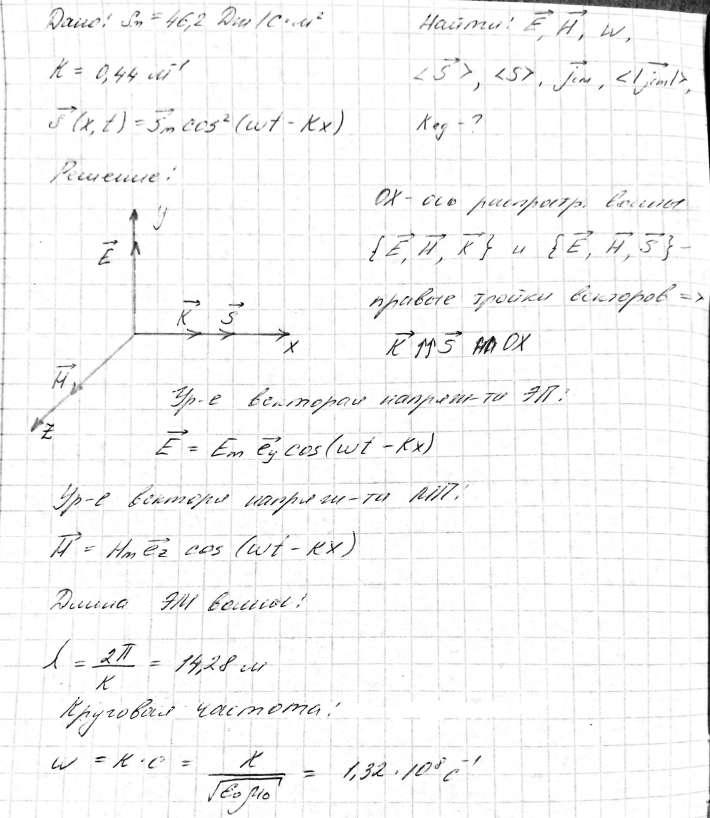 Дано: Sm = 46,2 Дж/с·м²
Найти: E⃗, H⃗, w,
K = 0,44 м⁻¹
<S⃗>, <S>, j⃗см, <|j⃗см|>,
S⃗(x,t) = S⃗m cos²(wt - Kx)
Kед - ?
Решение:
y
E⃗
K⃗ S⃗
x
H⃗
z
OX - ось распростр. волны
{E⃗, H⃗, K⃗} и {E⃗, H⃗, S⃗} -
правые тройки векторов =>
K⃗ ⇈ S⃗ ⇈ OX
Ур-е вектора напряж-ти ЭП:
E⃗ = Em e⃗y cos(wt - Kx)
Ур-е вектора напряж-ти МП:
H⃗ = Hm e⃗z cos(wt - Kx)
Длина ЭМ волны:
λ = 2π/K = 14,28 м
Круговая частота:
w = K·c = K/√ε₀μ₀ = 1,32·10⁸ c⁻¹